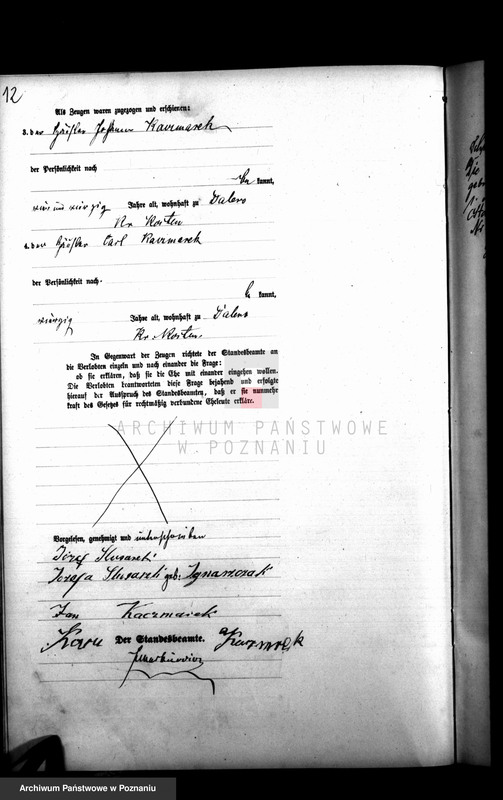 12
Als Zeugen waren zugezogen und erschienen:
3. der Häusler Johann Kaczmarek
der Persönlichkeit nach
be kannt,
vier und vierzig Jahre alt, wohnhaft zu Dalewo
Kr. Kosten
4. der Häusler Carl Kaczmarek
der Persönlichkeit nach
be kannt,
vierzig Jahre alt, wohnhaft zu Dalewo
Kr. Kosten.
In Gegenwart der Zeugen richtete der Standesbeamte an
die Verlobten einzeln und nach einander die Frage:
ob sie erklären, daß sie die Ehe mit einander eingehen wollen.
Die Verlobten beantworteten diese Frage bejahend und erfolgte
hierauf der Ausspruch des Standesbeamten, daß er sie nunmehr
kraft des Gesetzes für rechtmäßig verbundene Eheleute erkläre.
ARCHIWUM PAŃSTWOWE
W POZNANIU
Vorgelesen, genehmigt und unterschrieben
Józef Slusarek
Józefa geb. Ignaszczak
Jan Kaczmarek
Karu Kaczmarek
Der Standesbeamte.
Archiwum Państwowe w Poznaniu